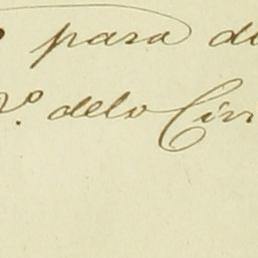 para di
º. delo Civ